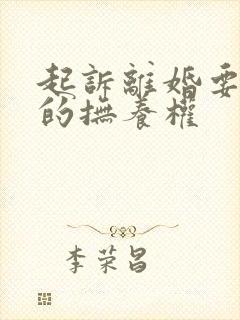 起訴離婚要
的撫養權
李荣昌